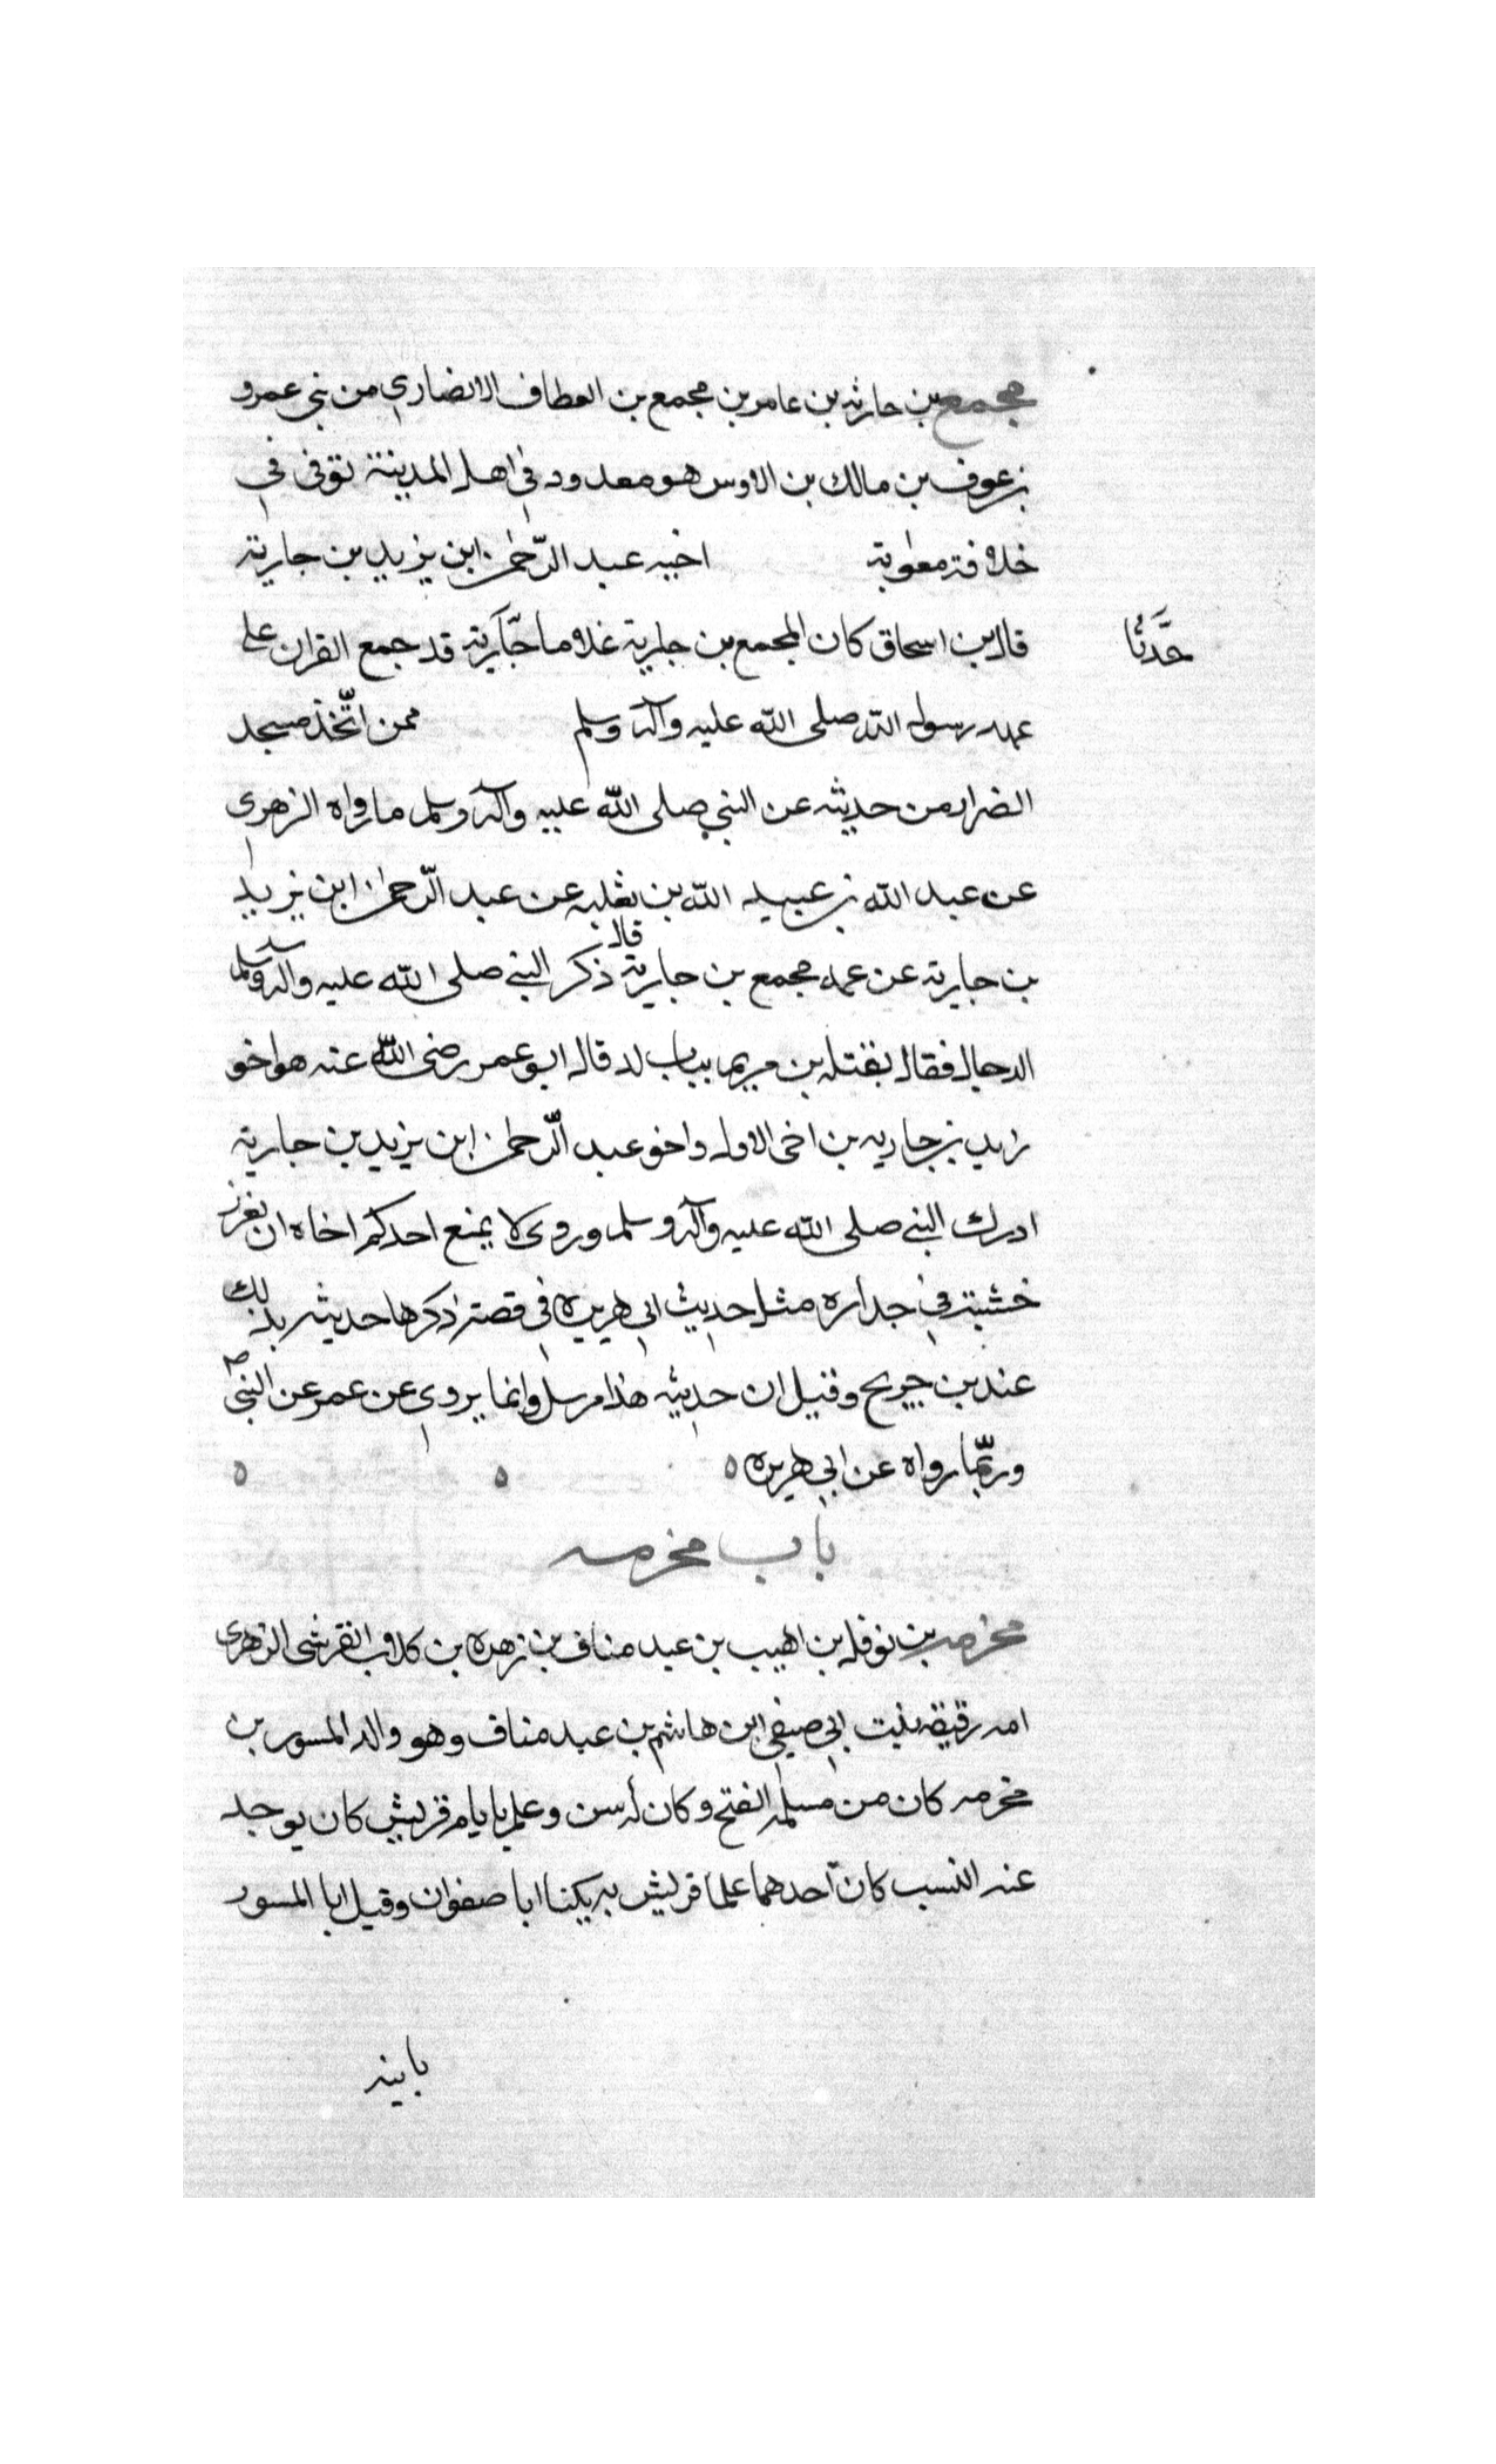 مجمع بن حارثه بن عامر بن مجمع بن العطاف الانصاري من بني عمرو
بن عوف بن مالك بن الاوس هو معدود في اهل المدينة توفى في
خلافة معوية اخيه عبد الرّحمن ابن يزيد بن جارية
حدَّثنا
قال بن اسحاق كان المجمع بن جارية غلاما جّآرية قد جمع القران على
عهد رسول الله صلى اللّه عليه وآله وسلم ممن اتّخذ مسجد
الضرار من حديثه عن النبي صلى اللّه عليه وآله وسلم ما رواه الزهري
عن عبد اللّه بن عبيد اللّه بن ثعلبه عن عبد الرّحمن ابن يزيد
بن جارية عن عمه مجمع بن جارية قال ذكر النبي صلى اللّه عليه وآله وسلم
الدجال فقال يقتله بن مريم بباب لد قال ابو عمر رضى اللّه عنه هو اخو
زيد بن جاريه بن اخى الاول واخو عبد الرّحمن ابن يزيد بن جارية
ادرك النبي صلى اللّه عليه وآله وسلم وروى لا يمنع احدكم اخاه ان يغرز
خشبة في جداره مثل حديث ابي هريره في قصة ذكرها حديثه بذلك
عند بن جريح وقيل ان حديثه هذا مرسل وانما يروي عن عمر عن النبي ص
وربّما رواه عن ابي هريره ه ه ه
باب مخرمه
مخرمه بن نوفل بن اهيب بن عبد مناف بن زهره بن كلاب القرشى الزهرى
امه رقيقه بنت ابي صيفي ابن هاشم بن عبد مناف وهو والد المسور بن
مخرمه كان من مسلمه الفتح وكان له سن وعلم بايام قريش كان يوجد
عنه النسب كان احدهما علما قريش به يكنا ابا صفوان وقيل ابا المسور
بابنه